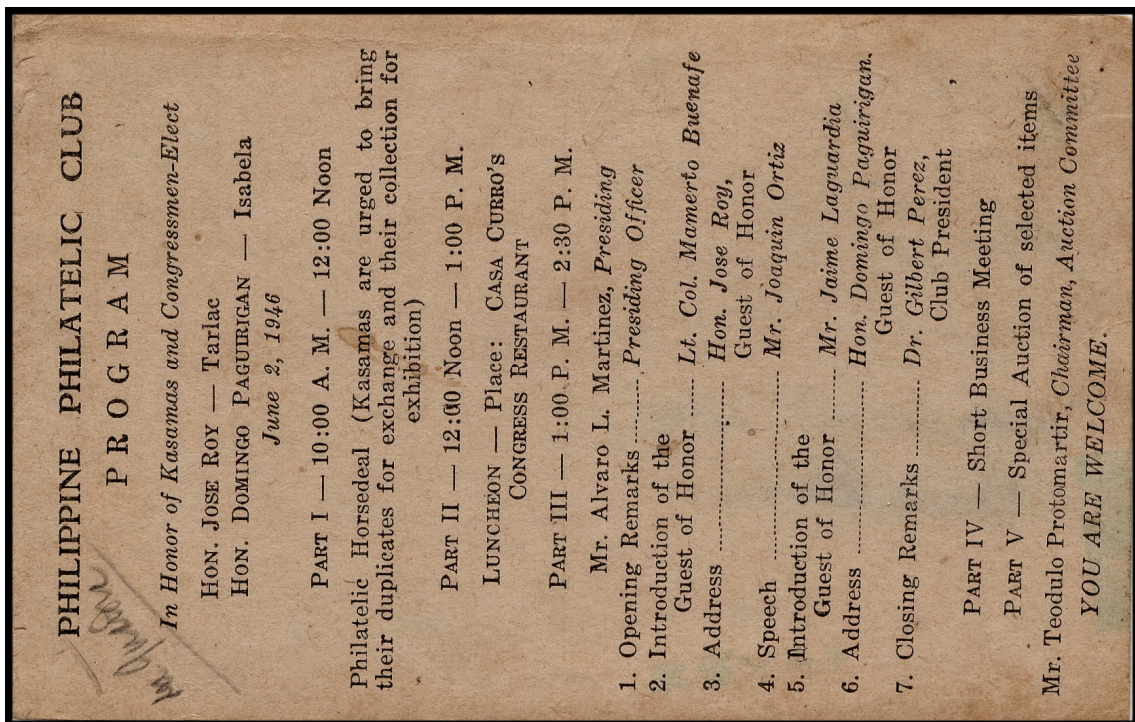 PHILIPPINE PHILATELIC CLUB
PROGRAM
In Honor of Kasamas and Congressmen-Elect
HON. JOSE ROY — Tarlac
HON. DOMINGO PAGUIRIGAN — Isabela
June 2, 1946
PART I — 10:00 A. M. — 12:00 Noon
Philatelic Horsedeal (Kasamas are urged to bring
their duplicates for exchange and their collection for
exhibition)
PART II — 12:00 Noon — 1:00 P. M.
LUNCHEON — Place: CASA CURRO'S
CONGRESS RESTAURANT
PART III — 1:00 P. M. — 2:30 P. M.
Mr. Alvaro L. Martinez, Presiding
1. Opening Remarks ........ Presiding Officer
2. Introduction of the
Guest of Honor ...... Lt. Col. Mamerto Buenafe
3. Address ........................ Hon. Jose Roy,
Guest of Honor
4. Speech ........................ Mr. Joaquin Ortiz
5. Introduction of the
Guest of Honor ........ Mr. Jaime Laguardia
6. Address ........................ Hon. Domingo Paguirigan.
Guest of Honor
7. Closing Remarks .......... Dr. Gilbert Perez,
Club President
PART IV — Short Business Meeting
PART V — Special Auction of selected items
Mr. Teodulo Protomartir, Chairman, Auction Committee
YOU ARE WELCOME.